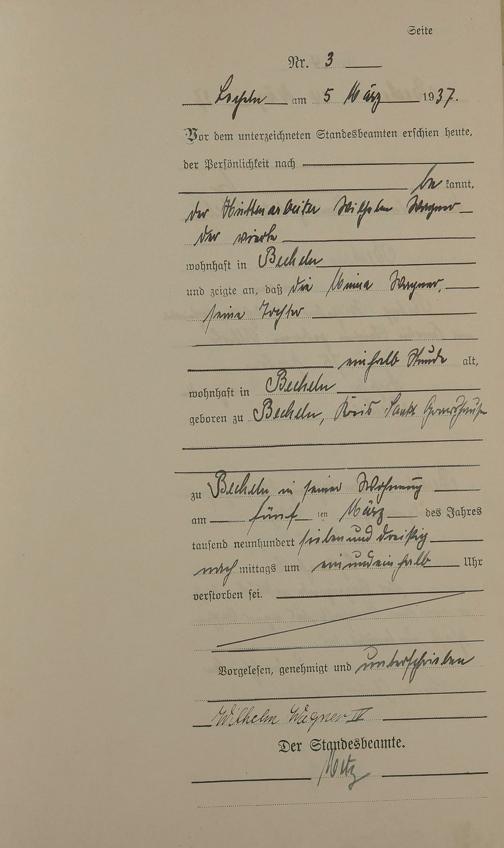 Seite
Nr. 3
Becheln am 5 März 1937.
Vor dem unterzeichneten Standesbeamten erschien heute,
der Persönlichkeit nach
be kannt,
der Hüttenarbeiter Wilhelm Wagner
der vierte
wohnhaft in Becheln
und zeigte an, daß die Minna Wagner,
seine Tochter
einhalb Stunde alt,
wohnhaft in Becheln
geboren zu Becheln, Kreis Sankt Goarshausen
zu Becheln in seiner Wohnung
am fünf ten März des Jahres
tausend neunhundert siebenunddreißig
nach mittags um einundeinhalb Uhr
verstorben sei.
Vorgelesen, genehmigt und unterschrieben
Wilhelm Wagner IV
Der Standesbeamte.